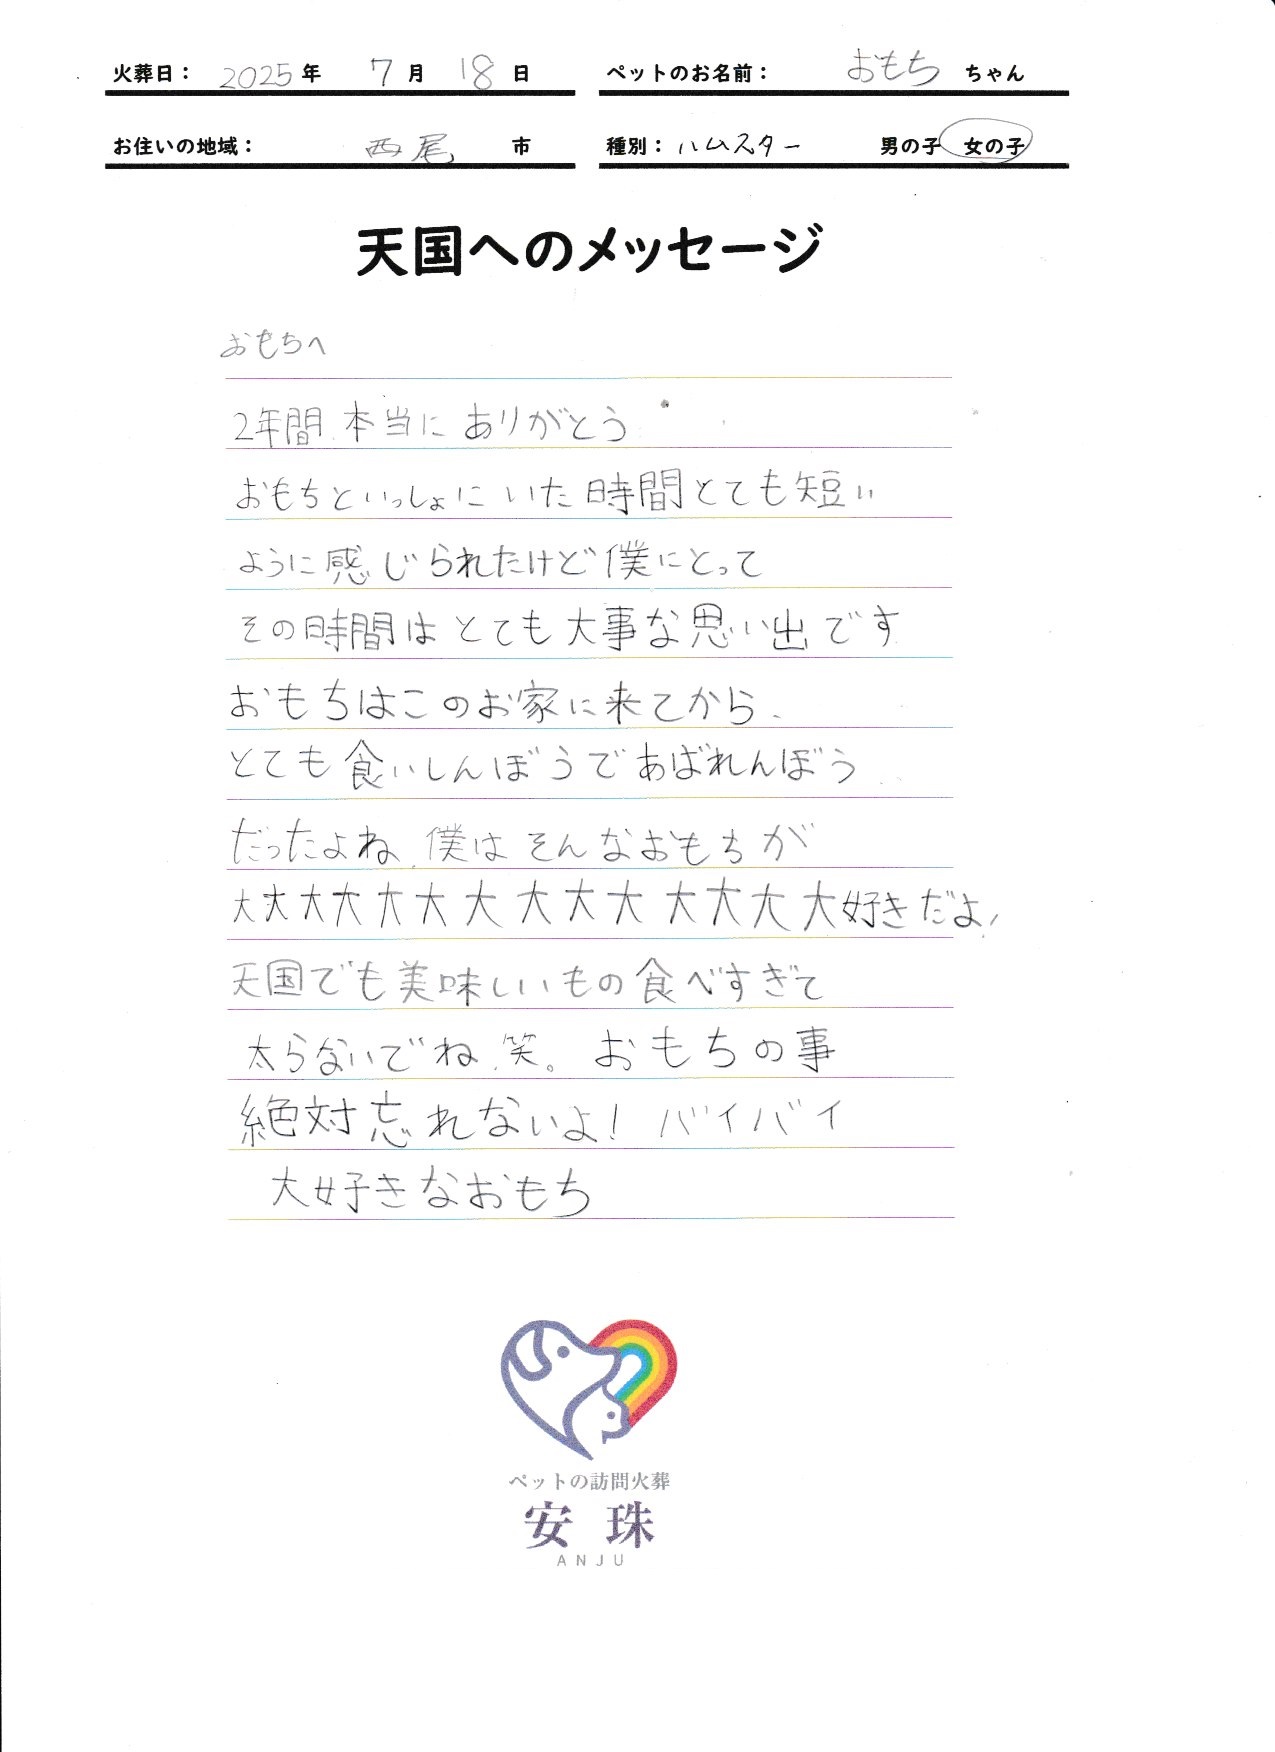 火葬日： 2025 年 7 月 18 日
ペットのお名前： おもち ちゃん
お住いの地域： 西尾 市
種別： ハムスター 男の子 女の子
天国へのメッセージ
おもちへ
2年間 本当に ありがとう
おもちといっしょに いた 時間とても短い
ように感じられたけど 僕にとって
その時間は とても 大事な思い出です
おもちはこのお家に来てから、
とても食いしんぼうであばれんぼう
だったよね、僕は そんなおもちが
大大大大大大大大大大大大大大好きだよ!
天国でも美味しいもの食べすぎて
太らないでね、笑。 おもちの事
絶対忘れないよ! バイバイ
大好きなおもち
ペットの訪問火葬
安珠
ANJU